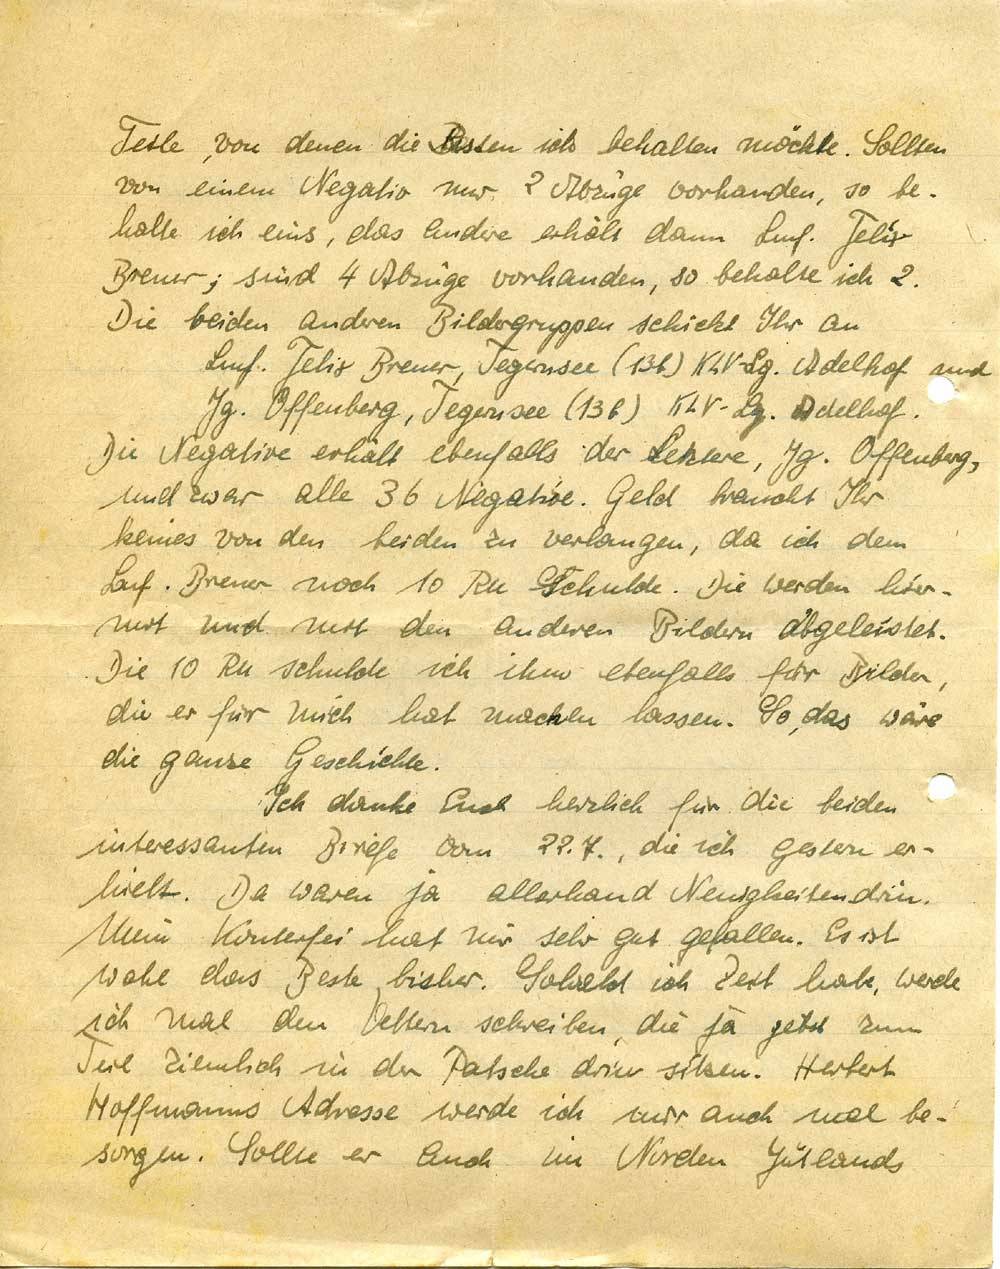 Teile, von denen die Besten ich behalten möchte. Sollten
von einem Negativ nur 2 Abzüge vorhanden, so be-
halte ich eins, das andere erhält dann Lmf. Felix
Breuer; sind 4 Abzüge vorhanden, so behalte ich 2.
Die beiden anderen Bildergruppen schickt Ihr an
Lmf. Felix Breuer, Tegernsee (13b) KLV-Lg. Adelhof und
Jg. Offenberg, Tegernsee (13b) KLV-Lg. Adelhof.
Die Negative erhält ebenfalls der Letztere, Jg. Offenberg,
und zwar alle 36 Negative. Geld braucht Ihr
keines von den beiden zu verlangen, da ich dem
Lmf. Breuer noch 10 RM Schulde. Die werden hier-
mit und mit den anderen Bildern abgeleistet.
Die 10 RM schulde ich ihm ebenfalls für Bilder,
die er für mich hat machen lassen. So, das wäre
die ganze Geschichte.
Ich danke Euch herzlich für die beiden
interessanten Briefe vom 22.7., die ich gestern er-
hielt. Da waren ja allerhand Neuigkeiten drin.
Mein Konterfei hat mir sehr gut gefallen. Es ist
wohl das Beste bisher. Sobald ich Zeit habe, werde
ich mal den Vettern schreiben, die ja jetzt zum
Teil ziemlich in der Patsche drin sitzen. Herbert
Hoffmanns Adresse werde ich mir auch mal be-
sorgen. Sollte er auch im Norden Jütlands